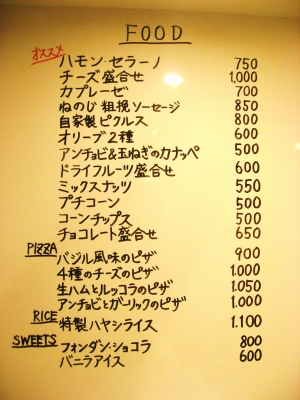 FOOD
オススメ
ハモン・セラーノ 750
チーズ盛合せ 1,000
カプレーゼ 700
ねのじ粗挽ソーセージ 850
自家製ピクルス 800
オリーブ2種 600
アンチョビ&玉ねぎのカナッペ 500
ドライフルーツ盛合せ 600
ミックスナッツ 550
プチコーン 500
コーンチップス 500
チョコレート盛合せ 650
PIZZA
バジル風味のピザ 900
4種のチーズのピザ 1.000
生ハムとルッコラのピザ 1.050
アンチョビとガーリックのピザ 1.000
RICE
特製ハヤシライス 1.100
SWEETS
フォンダン・ショコラ 800
バニラアイス 600